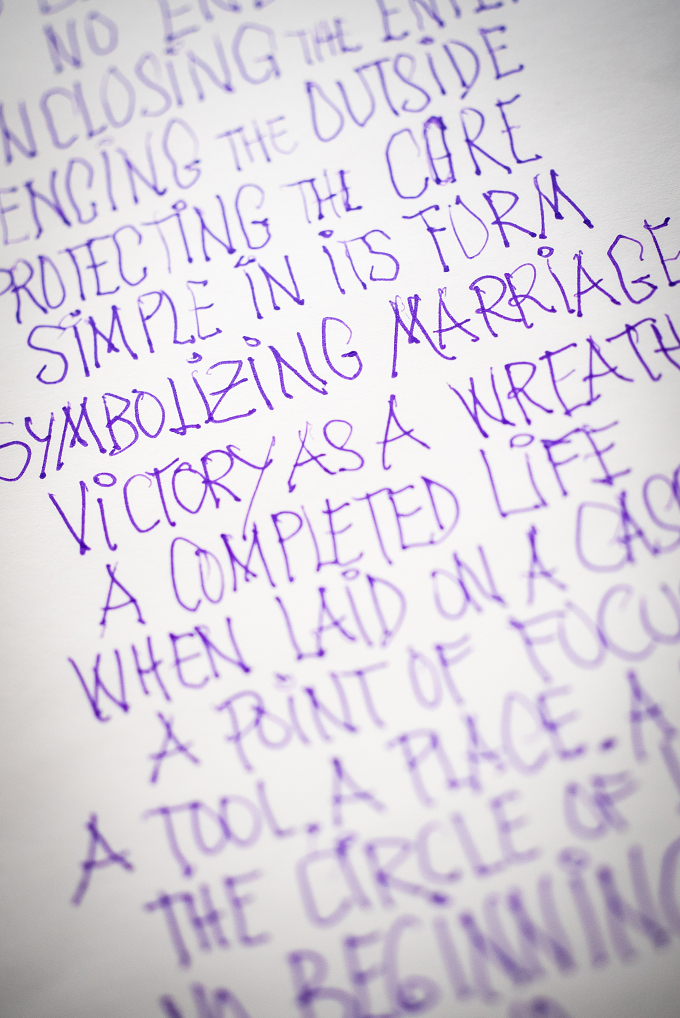 NO END
NCLOSING THE ENTE
ENCING THE OUTSIDE
PROTECTING THE CORE
SiMPLE iN iTS FORM
SYMBOLiZiNG MARRiAGE
ViCTORY AS A WREATH
A COMPLETED LiFE
WHEN LAiD ON A CAS
A POiNT OF FOCU
A TOOL. A PLACE. A
THE CiRCLE OF
NO BEGiNNiNG